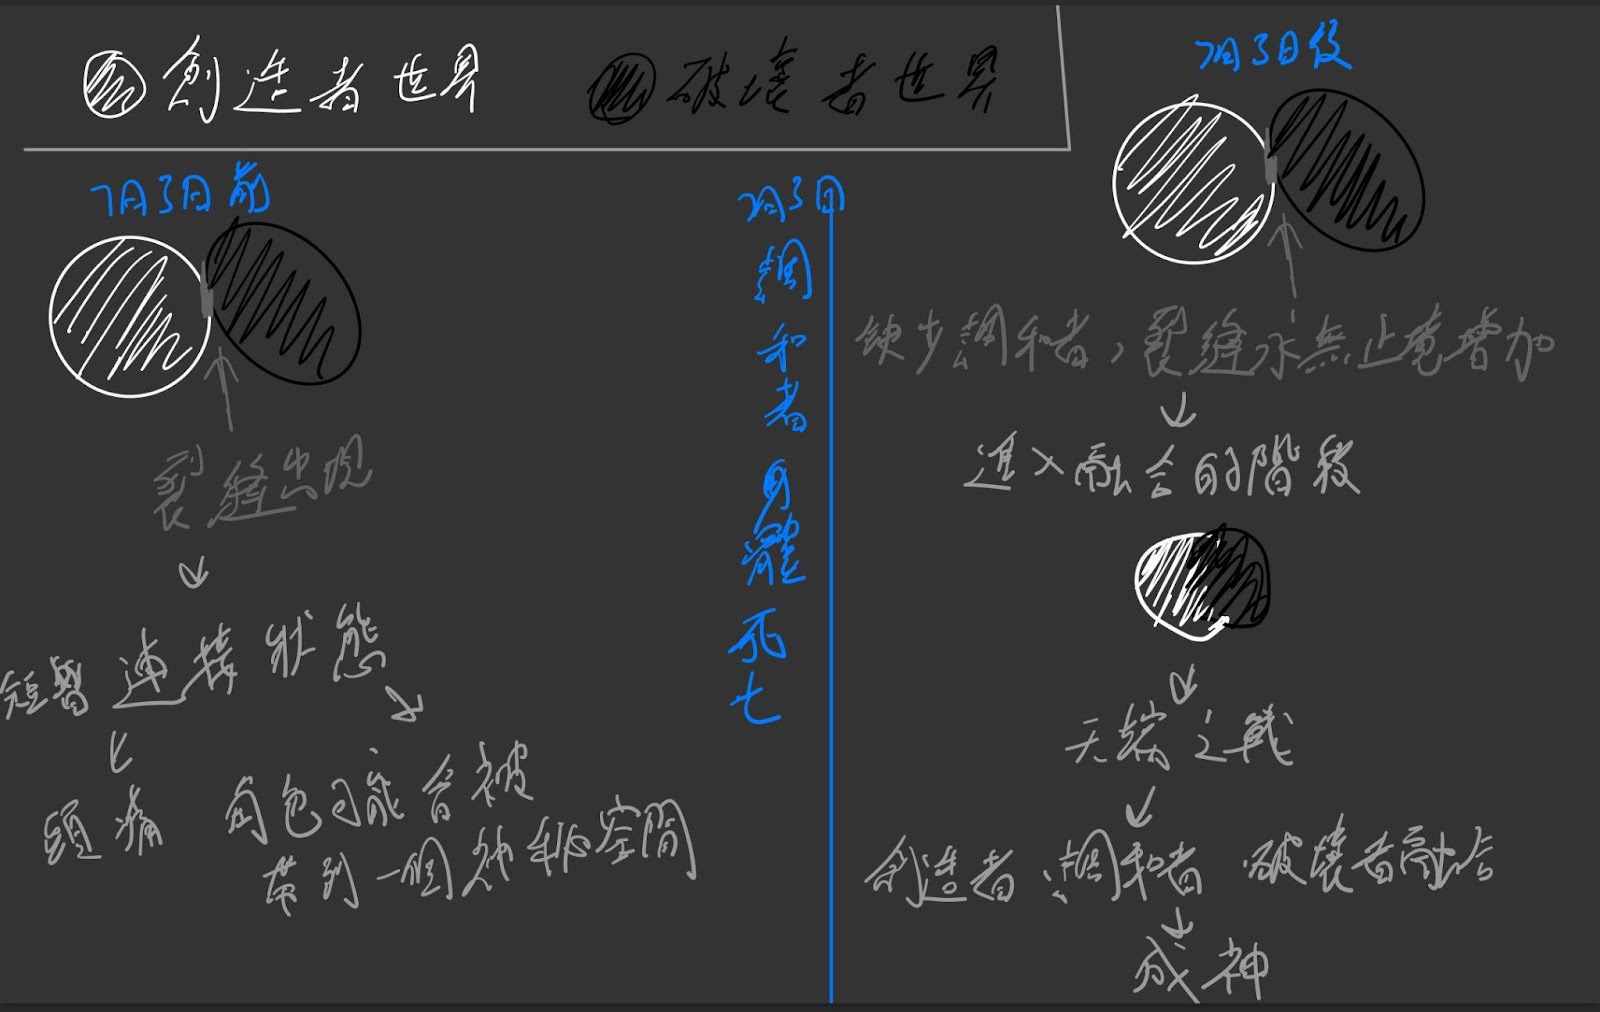 創造者世界
破壞者世界
7月3日前
裂縫出現
短暫連接狀態
頭痛
角色可能會被
帶到一個神秘空間
7月3日
調和者身體死亡
7月3日後
缺少調和者，裂縫永無止境增加
進入融合的階段
天端之戰
創造者、調和者、破壞者融合
成神